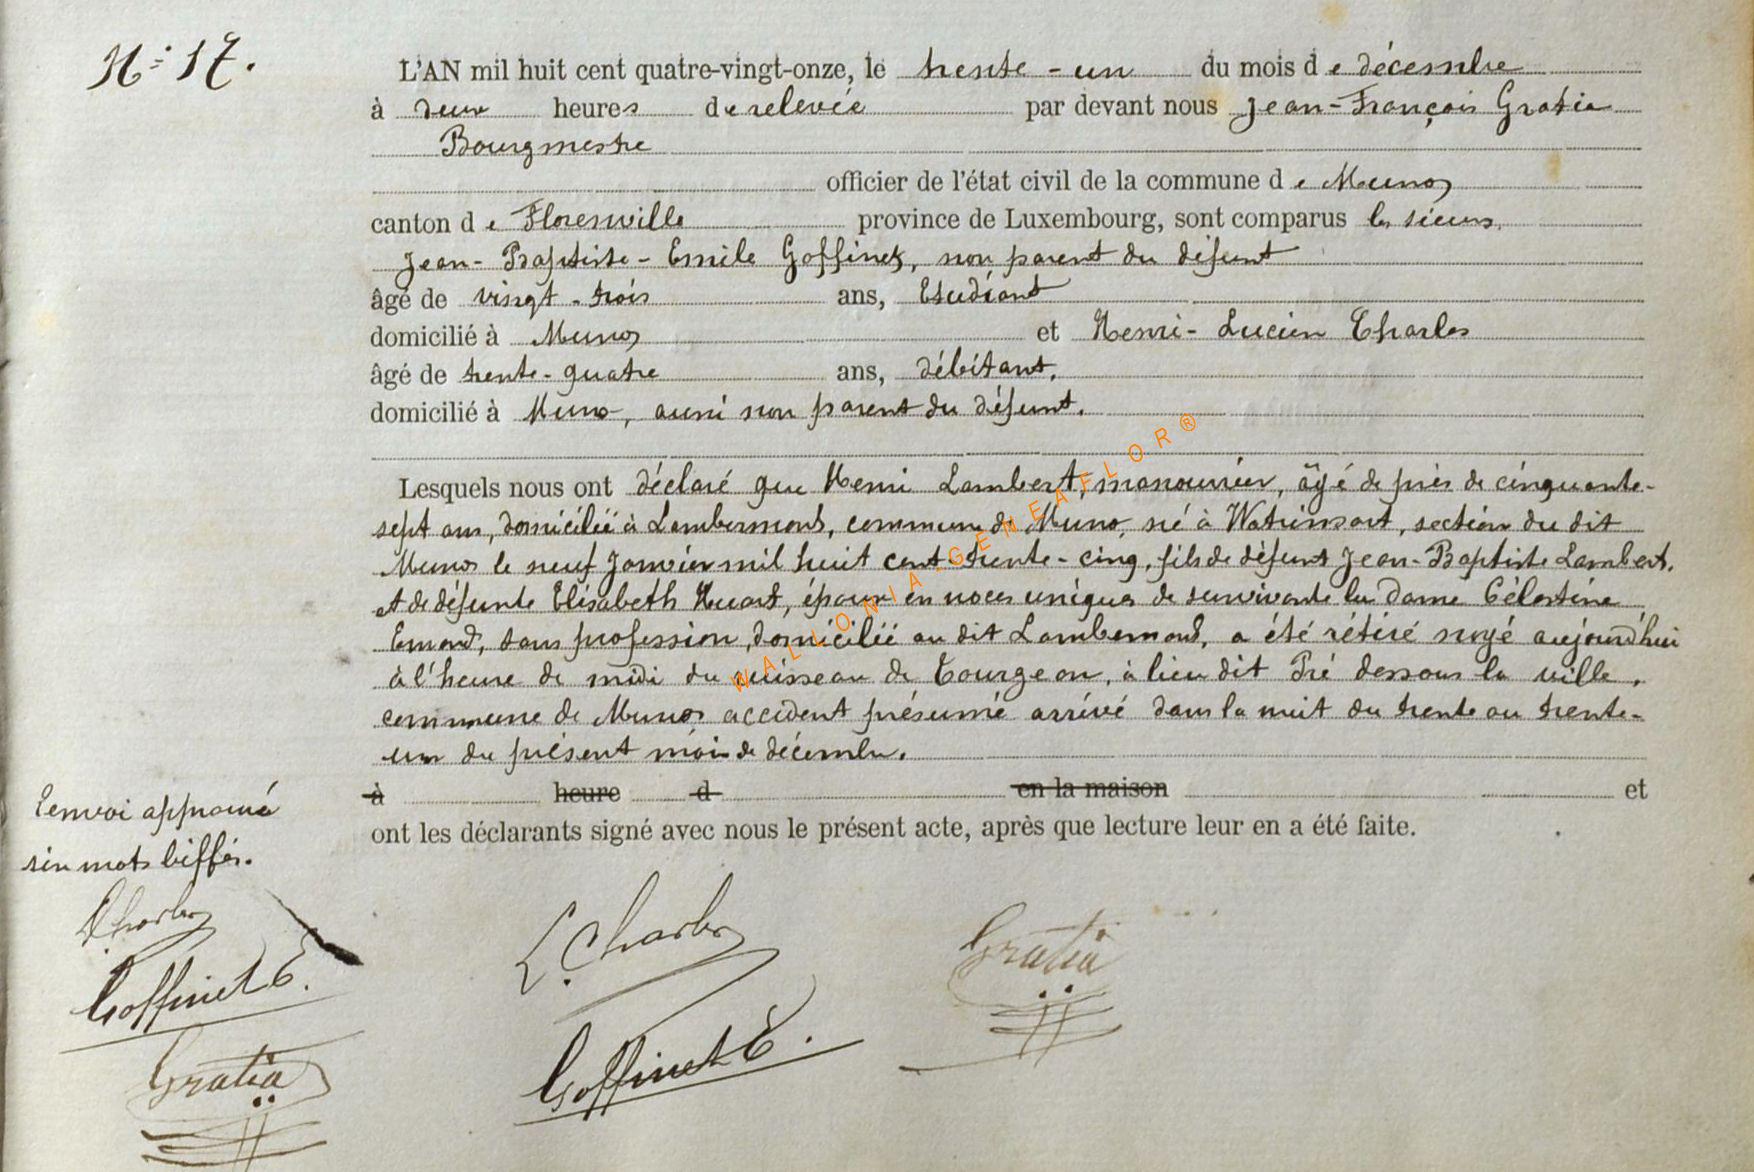 N° 17.
L'AN mil huit cent quatre-vingt-onze, le trente-un du mois de décembre
à deux heures de relevée par devant nous Jean-François Gratia
Bourgmestre
officier de l'état civil de la commune de Muno,
canton de Florenville province de Luxembourg, sont comparus les sieurs
Jean-Baptiste-Emile Goffinet, non parent du défunt
âgé de vingt-trois ans, Etudiant
domicilié à Muno, et Henri-Lucien Charles
âgé de trente-quatre ans, débitant,
domicilié à Muno, aussi non parent du défunt.
Lesquels nous ont déclaré que Henri Lambert, manouvrier, âgé de près de cinquante-
sept ans, domicilié à Lambermont, commune de Muno, né à Watrinsart, section du dit
Muno le neuf Janvier mil huit cent trente-cinq, fils de défunt Jean-Baptiste Lambert,
et de défunte Elisabeth Huart, époux en noces uniques de survivante la dame Célestine
Emond, sans profession, domiciliée au dit Lambermont, a été rétiré noyé aujourd'hui
à l'heure de midi du ruisseau de Tourgeon, à lieu dit Pré dessous la ville,
commune de Muno, accident présumé arrivé dans la nuit du trente au trente-
un du présent mois de décembre.
à heure d en la maison et
ont les déclarants signé avec nous le présent acte, après que lecture leur en a été faite.
Renvoi approuvé
six mots biffés.
L. Charles
Goffinet E.
Gratia
L. Charles
Goffinet E.
Gratia
WALLONIA-GENEAFLOR®